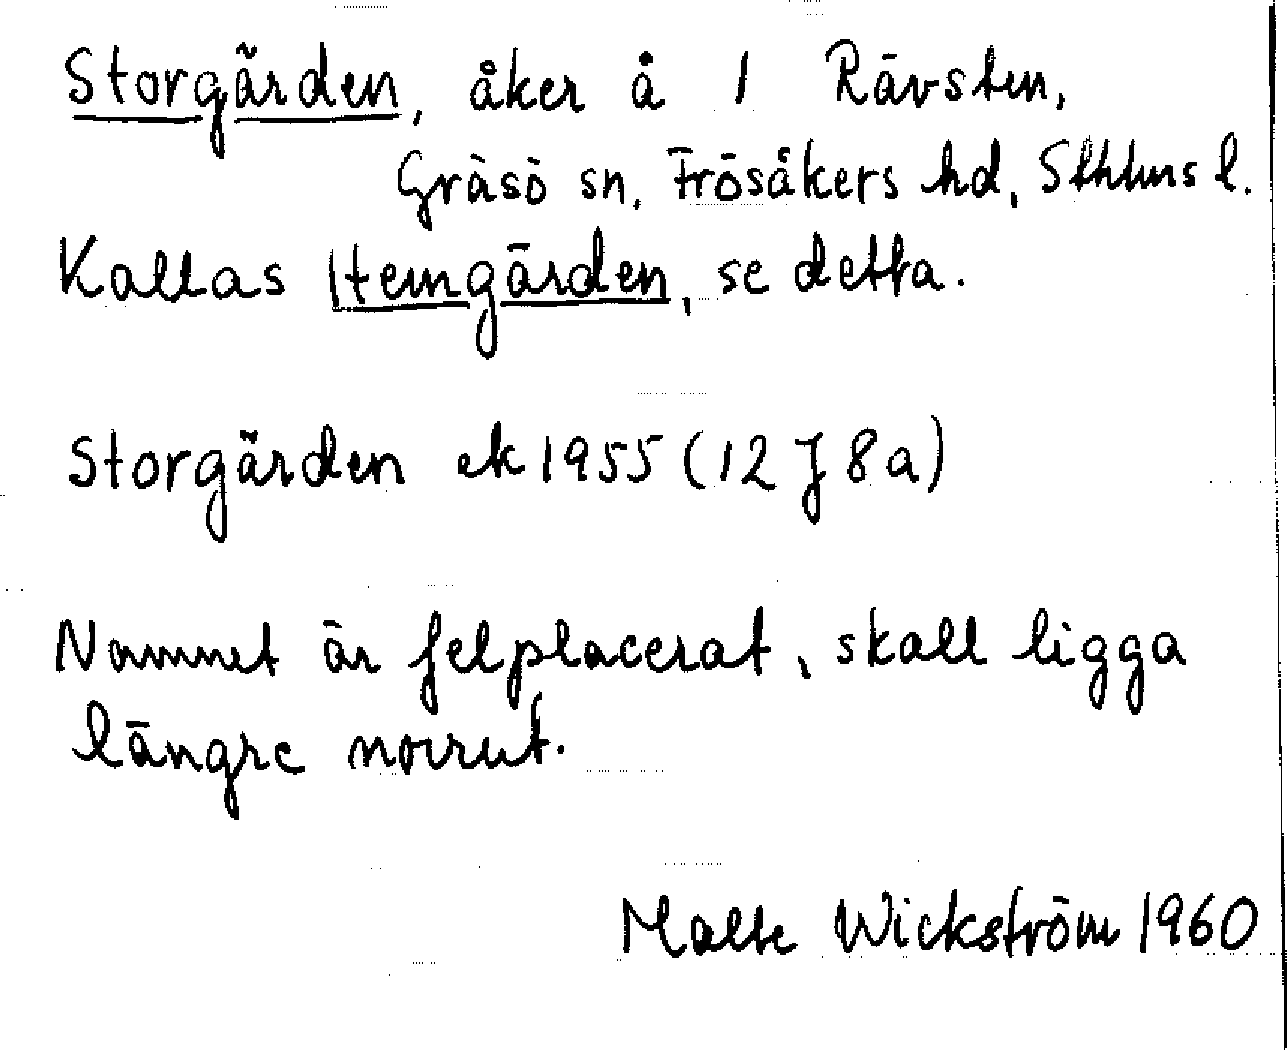 Storgärden, åker å 1 Rävsten,
Gräsö sn, Frösåkers hd, Sthlms l.
Kallas Hemgärden, se detta.
Storgärden ek 1955 (12 J 8 a)
Namnet är felplacerat, skall ligga
längre norrut.
Malte Wickström 1960